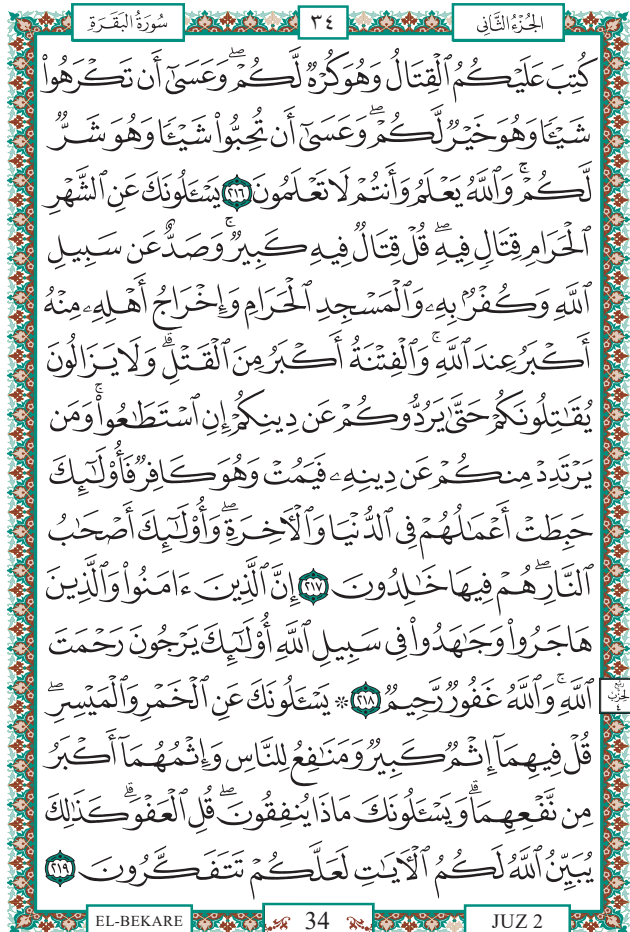 الجُزْءُ الثَّانِي
٣٤
سُورَةُ البَقَرَةِ
كُتِبَ عَلَيْكُمُ ٱلْقِتَالُ وَهُوَ كُرْهٌ لَّكُمْ ۖ وَعَسَىٰٓ أَن تَكْرَهُوا۟
شَيْـًٔا وَهُوَ خَيْرٌ لَّكُمْ ۖ وَعَسَىٰٓ أَن تُحِبُّوا۟ شَيْـًٔا وَهُوَ شَرٌّ
لَّكُمْ ۗ وَٱللَّهُ يَعْلَمُ وَأَنتُمْ لَا تَعْلَمُونَ ٢١٦ يَسْـَٔلُونَكَ عَنِ ٱلشَّهْرِ
ٱلْحَرَامِ قِتَالٍ فِيهِ ۖ قُلْ قِتَالٌ فِيهِ كَبِيرٌ ۚ وَصَدٌّ عَن سَبِيلِ
ٱللَّهِ وَكُفْرٌۢ بِهِۦ وَٱلْمَسْجِدِ ٱلْحَرَامِ وَإِخْرَاجُ أَهْلِهِۦ مِنْهُ
أَكْبَرُ عِندَ ٱللَّهِ ۚ وَٱلْفِتْنَةُ أَكْبَرُ مِنَ ٱلْقَتْلِ ۗ وَلَا يَزَالُونَ
يُقَـٰتِلُونَكُمْ حَتَّىٰ يَرُدُّوكُمْ عَن دِينِكُمْ إِنِ ٱسْتَطَـٰعُوا۟ ۚ وَمَن
يَرْتَدِدْ مِنكُمْ عَن دِينِهِۦ فَيَمُتْ وَهُوَ كَافِرٌ فَأُو۟لَـٰٓئِكَ
حَبِطَتْ أَعْمَـٰلُهُمْ فِى ٱلدُّنْيَا وَٱلْـَٔاخِرَةِ ۖ وَأُو۟لَـٰٓئِكَ أَصْحَـٰبُ
ٱلنَّارِ ۖ هُمْ فِيهَا خَـٰلِدُونَ ٢١٧ إِنَّ ٱلَّذِينَ ءَامَنُوا۟ وَٱلَّذِينَ
هَاجَرُوا۟ وَجَـٰهَدُوا۟ فِى سَبِيلِ ٱللَّهِ أُو۟لَـٰٓئِكَ يَرْجُونَ رَحْمَتَ
ٱللَّهِ ۚ وَٱللَّهُ غَفُورٌ رَّحِيمٌ ٢١٨ ۞ يَسْـَٔلُونَكَ عَنِ ٱلْخَمْرِ وَٱلْمَيْسِرِ ۖ
رُبع الحِزْب ٤
قُلْ فِيهِمَآ إِثْمٌ كَبِيرٌ وَمَنَـٰفِعُ لِلنَّاسِ وَإِثْمُهُمَآ أَكْبَرُ
مِن نَّفْعِهِمَا ۗ وَيَسْـَٔلُونَكَ مَاذَا يُنفِقُونَ ۖ قُلِ ٱلْعَفْوَ ۗ كَذَٰلِكَ
يُبَيِّنُ ٱللَّهُ لَكُمُ ٱلْـَٔايَـٰتِ لَعَلَّكُمْ تَتَفَكَّرُونَ ٢١٩
EL-BEKARE
34
JUZ 2